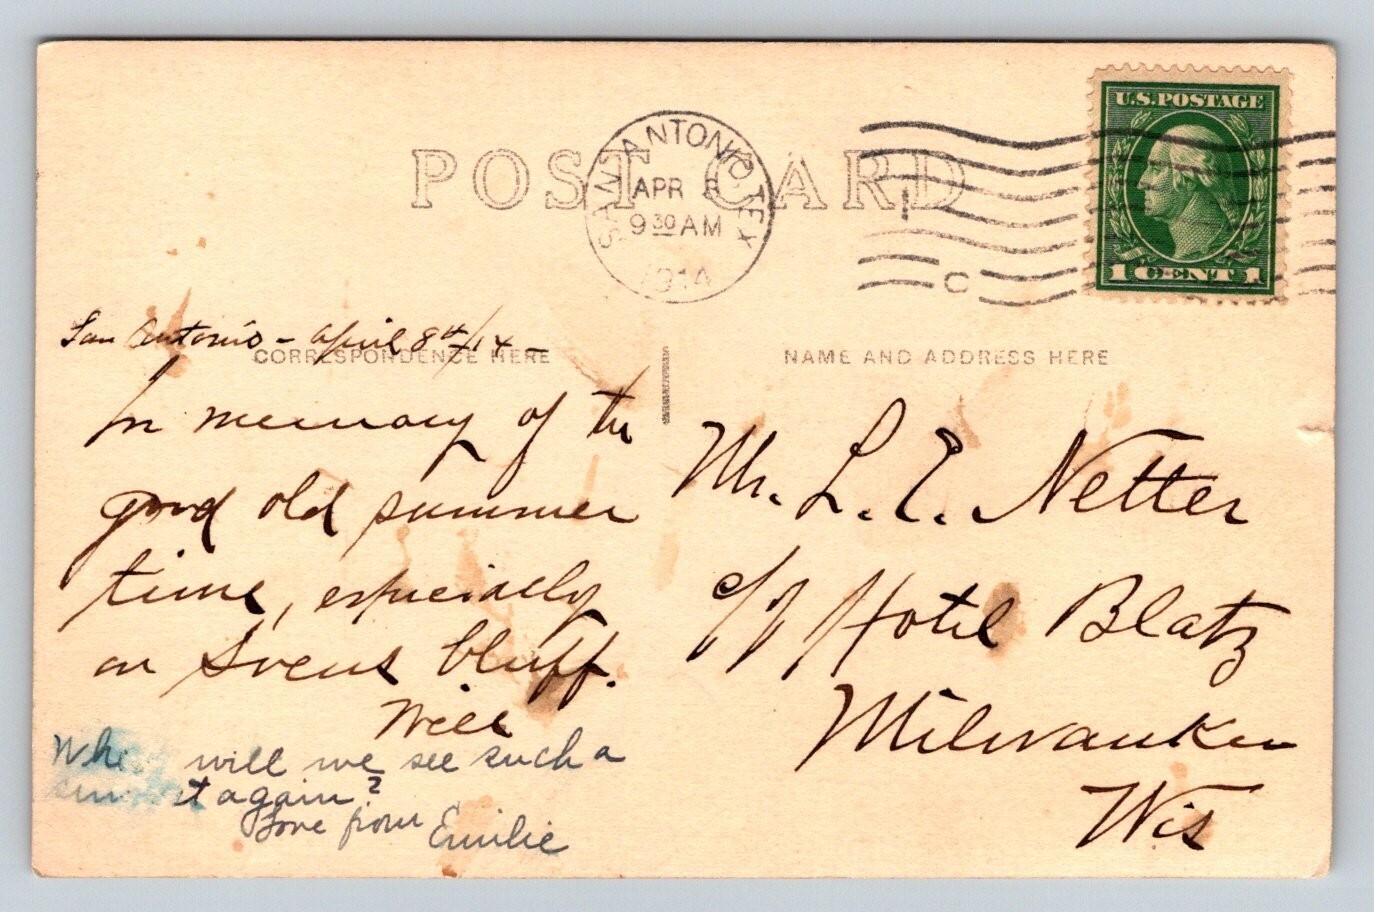 POST CARD
SAN ANTONIO, TEX.
APR 8
9 30 AM
1914
C
U.S. POSTAGE
1 CENT 1
San Antonio - April 8th/14 -
CORRESPONDENCE HERE
NAME AND ADDRESS HERE
In memory of the
good old summer
time, especially
on bluff.
Will
When will we see such a
again?
Love from Emilie
Mr. L. E. Netter
c/o Hotel Blatz
Milwaukee
Wis